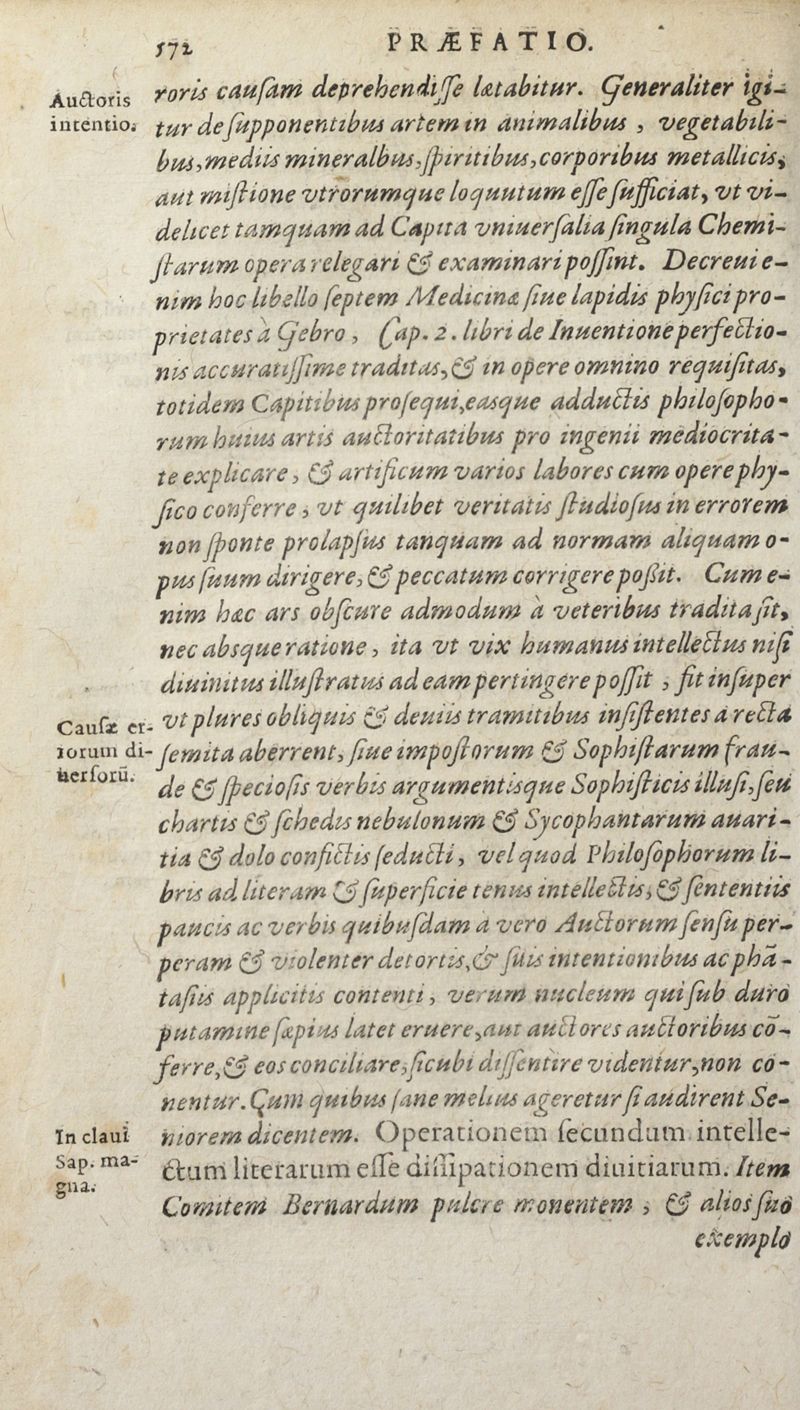 572 PRÆFATIO.
Auctoris
intentio.
roris causam deprehendisse lætabitur. Generaliter igi-
tur de supponentibus artem in animalibus, vegetabili-
bus, mediis mineralbus, spiritibus, corporibus metallicis,
aut mistione vtrorumque loquutum esse sufficiat, vt vi-
delicet tamquam ad Capita vniuersalia singula Chemi-
starum opera relegari & examinari possint. Decreui e-
nim hoc libello septem Medicinæ siue lapidis physici pro-
prietates à Gebro, Cap. 2. libri de Inuentione perfectio-
nis accuratissime traditas, & in opere omnino requisitas,
totidem Capitibus prosequi, easque adductis philosopho-
rum huius artis auctoritatibus pro ingenii mediocrita-
te explicare, & artificum varios labores cum opere phy-
sico conferre, vt quilibet veritatis studiosus in errorem
non sponte prolapsus tanquam ad normam aliquam o-
pus suum dirigere, & peccatum corrigere possit. Cum e-
nim hæc ars obscure admodum à veteribus tradita sit,
nec absque ratione, ita vt vix humanus intellectus nisi
diuinitus illustratus ad eam pertingere possit, fit insuper
Causæ er-
rorum di-
uersorū.
vt plures obliquis & deuiis tramitibus insistentes à recta
semita aberrent, siue impostorum & Sophistarum frau-
de & speciosis verbis argumentisque Sophisticis illusi, seu
chartis & schedis nebulonum & Sycophantarum auari-
tia & dolo confictis seducti, vel quod Philosophorum li-
bris ad literam & superficie tenus intellectis, & sententiis
paucis ac verbis quibusdam à vero Auctorum sensu per-
peram & violenter detortis, & suis intentionibus ac phā-
tasiis applicitis contenti, verum nucleum qui sub duro
putamine sæpius latet eruere, aut auctores auctoribus cō-
ferre, & eos conciliare, sicubi dissentire videntur, non co-
nentur. Qum quibus sane melius ageretur si audirent Se-
In claui
Sap. ma-
gna.
niorem dicentem. Operationem secundum intelle-
ctum literarum esse dissipationem diuitiarum. Item
Comitem Bernardum pulcre monentem, & alios suo
exemplo